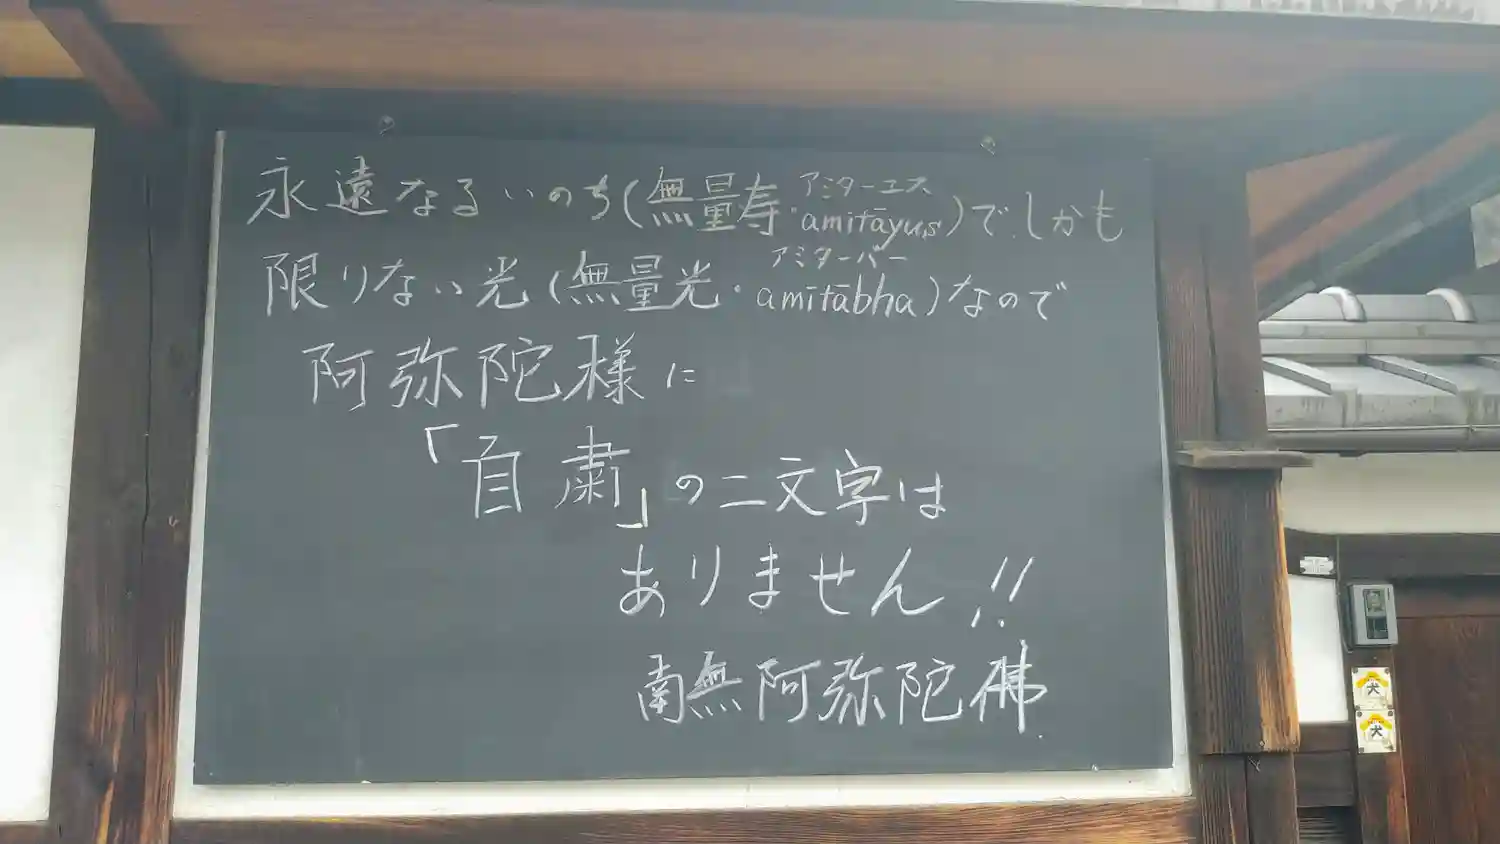 永遠なるいのち(無量寿・amitāyus)でしかも
アミターユス
限りない光(無量光・amitābha)なので
アミターバー
阿弥陀様に
「自粛」の二文字は
ありません!!
南無阿弥陀佛
犬
犬